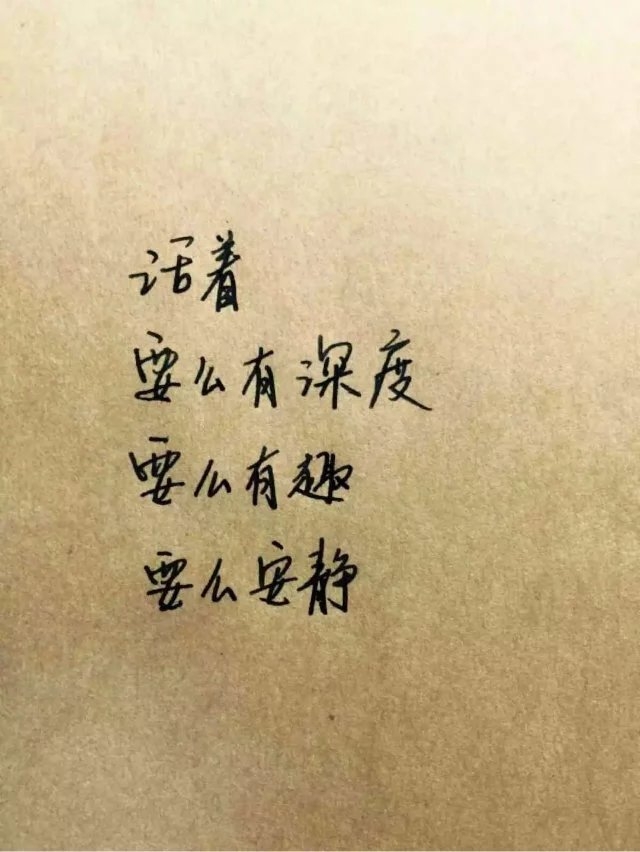 活着
要么有深度
要么有趣
要么安静